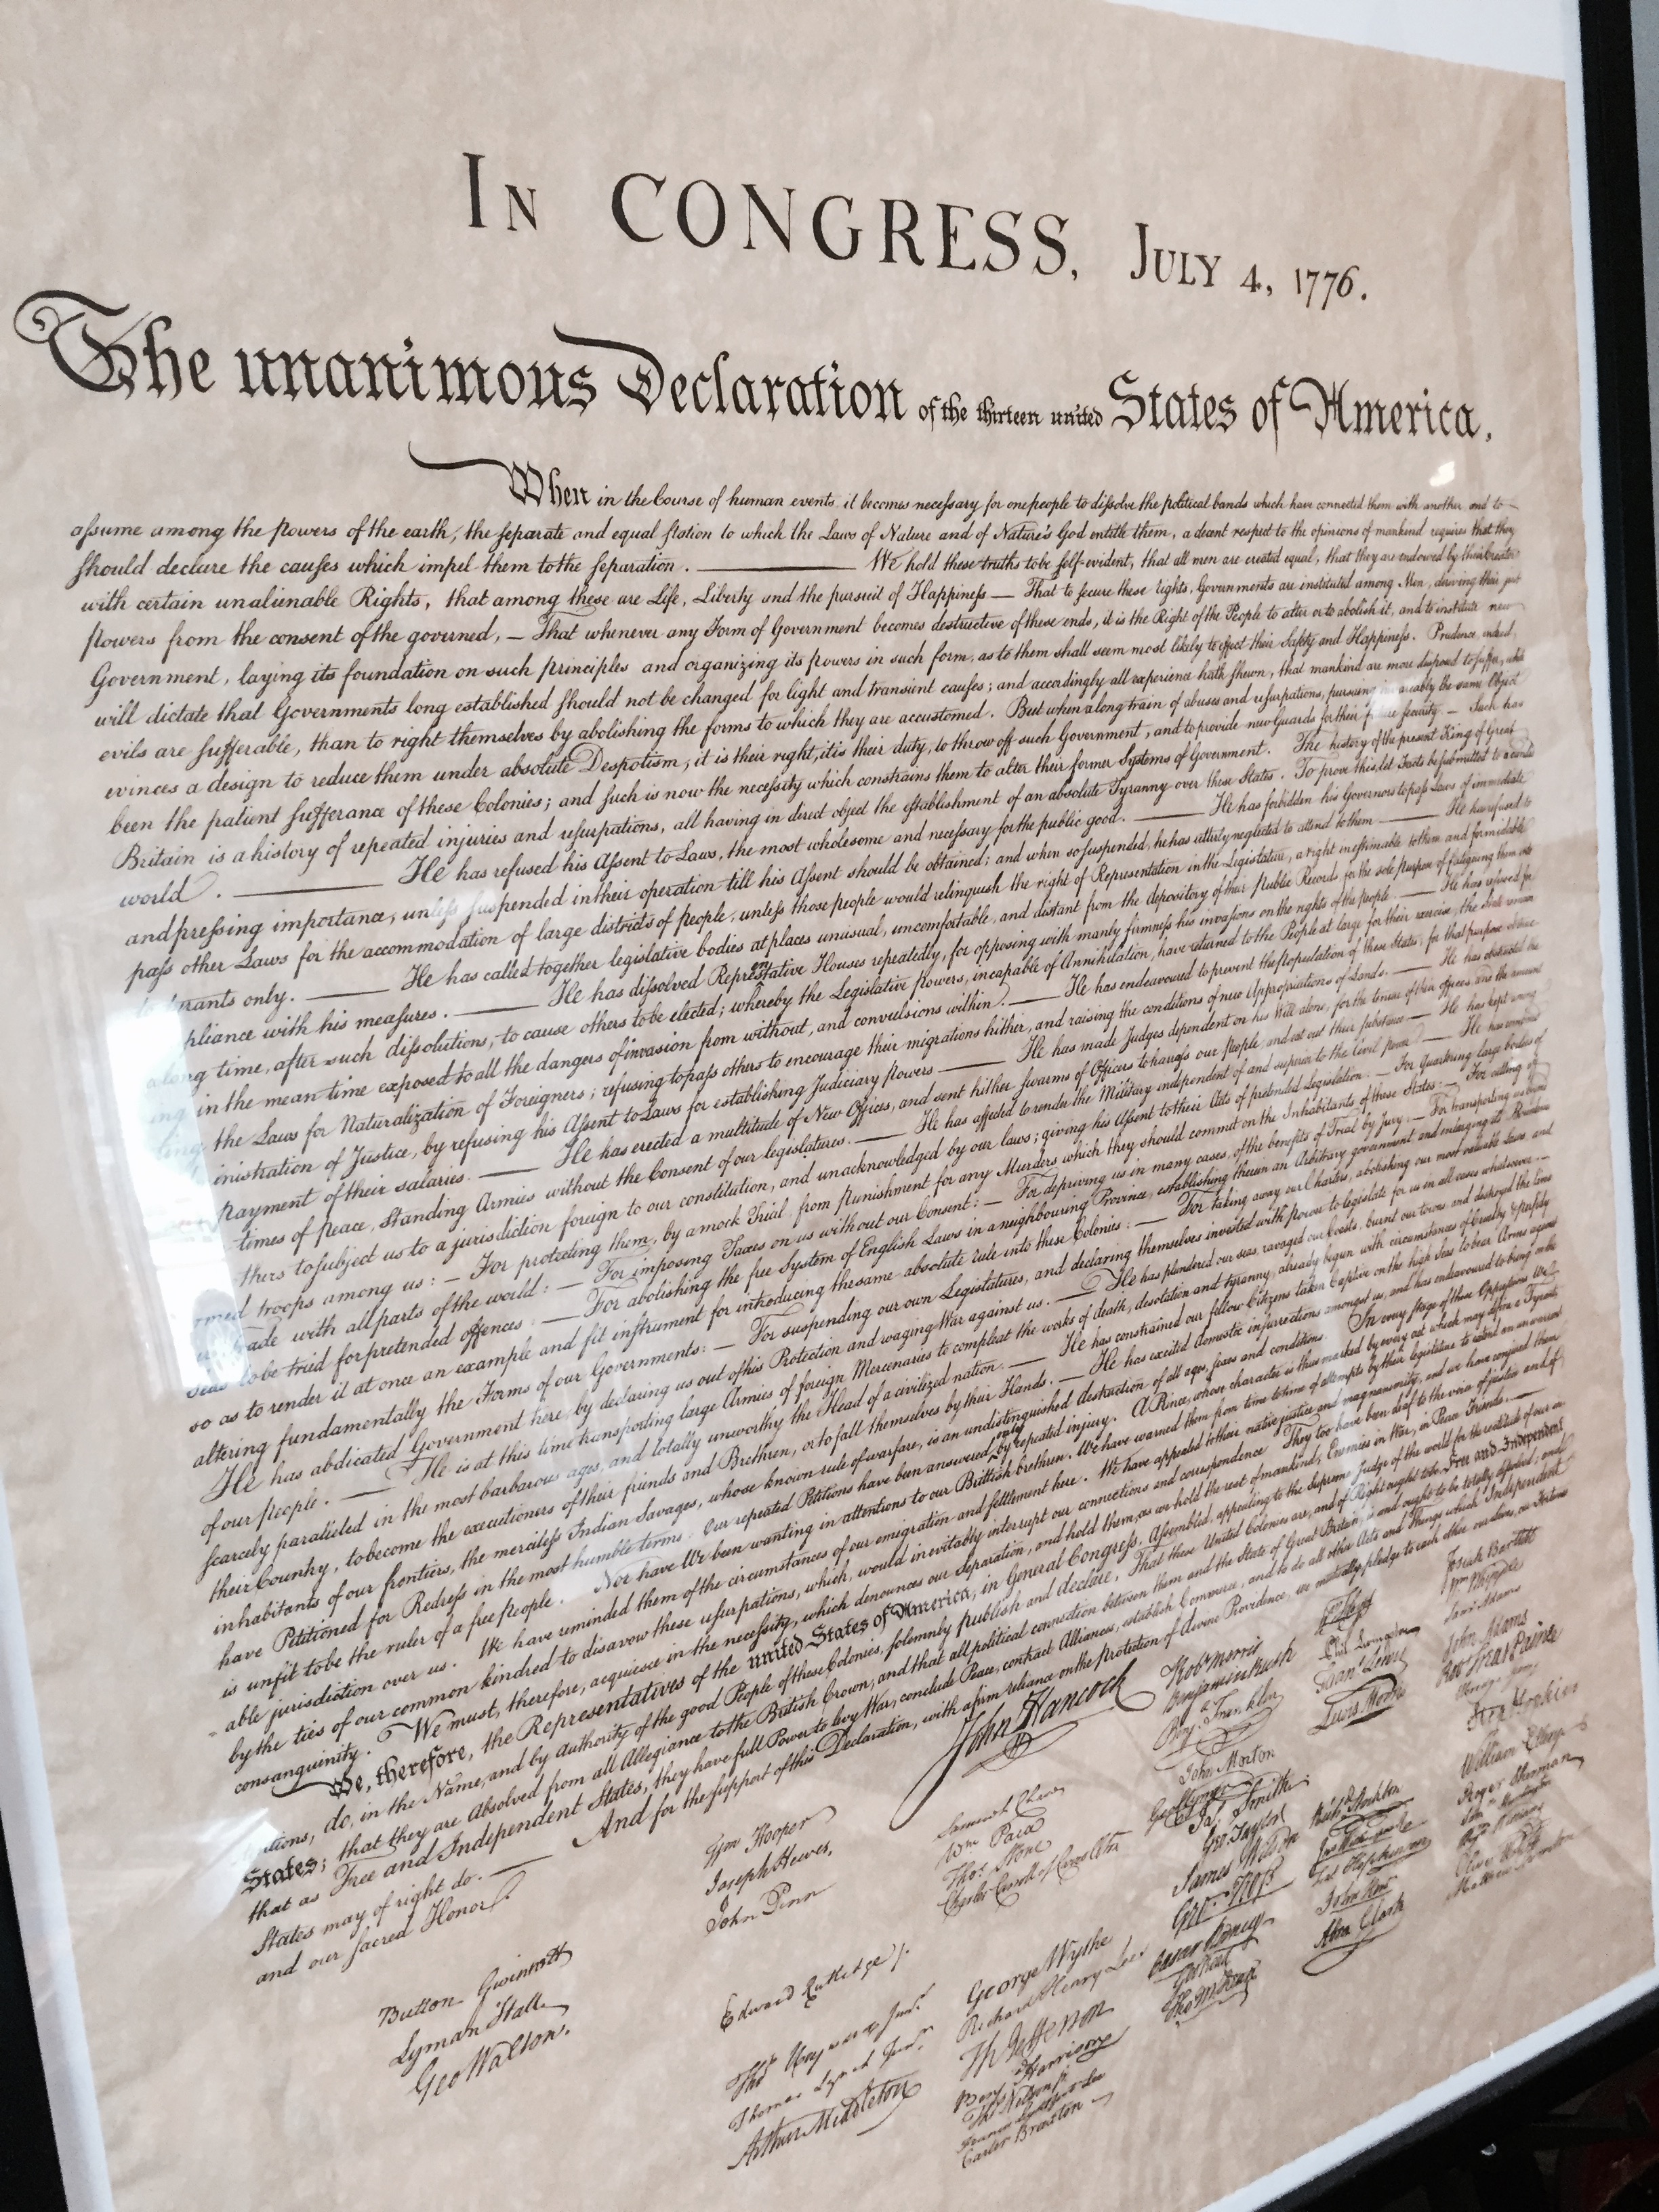 IN CONGRESS, JULY 4, 1776.
The unanimous Declaration of the thirteen united States of America,
When in the Course of human events it becomes necessary for one people to dissolve the political bands which have connected them with another, and to
assume among the powers of the earth, the separate and equal station to which the Laws of Nature and of Nature's God entitle them, a decent respect to the opinions of mankind requires that they
should declare the causes which impel them to the separation. — We hold these truths to be self-evident, that all men are created equal, that they are endowed by their Creator
with certain unalienable Rights, that among these are Life, Liberty and the pursuit of Happiness — That to secure these rights, Governments are instituted among Men, deriving their just
powers from the consent of the governed, — That whenever any Form of Government becomes destructive of these ends, it is the Right of the People to alter or to abolish it, and to institute new
Government, laying its foundation on such principles and organizing its powers in such form, as to them shall seem most likely to effect their Safety and Happiness. Prudence, indeed,
will dictate that Governments long established should not be changed for light and transient causes; and accordingly all experience hath shewn, that mankind are more disposed to suffer, while
evils are sufferable, than to right themselves by abolishing the forms to which they are accustomed. But when a long train of abuses and usurpations, pursuing invariably the same Object
evinces a design to reduce them under absolute Despotism, it is their right, it is their duty, to throw off such Government, and to provide new Guards for their future security — Such has
been the patient sufferance of these Colonies; and such is now the necessity which constrains them to alter their former Systems of Government. The history of the present King of Great
Britain is a history of repeated injuries and usurpations, all having in direct object the establishment of an absolute Tyranny over these States. To prove this, let Facts be submitted to a candid
world. — He has refused his Assent to Laws, the most wholesome and necessary for the public good. — He has forbidden his Governors to pass Laws of immediate
and pressing importance, unless suspended in their operation till his Assent should be obtained; and when so suspended, he has utterly neglected to attend to them — He has refused to
pass other Laws for the accommodation of large districts of people, unless those people would relinquish the right of Representation in the Legislature, a right inestimable to them and formidable
to tyrants only. — He has called together legislative bodies at places unusual, uncomfortable, and distant from the depository of their Public Records, for the sole purpose of fatiguing them into
pliance with his measures. — He has dissolved Representative Houses repeatedly, for opposing with manly firmness his invasions on the rights of the people. — He has refused for
a long time, after such dissolutions, to cause others to be elected; whereby the Legislative powers, incapable of Annihilation, have returned to the People at large for their exercise; the State remain
ing in the mean time exposed to all the dangers of invasion from without, and convulsions within. — He has endeavoured to prevent the population of these States; for that purpose obstruc
ting the Laws for Naturalization of Foreigners; refusing to pass others to encourage their migrations hither, and raising the conditions of new Appropriations of Lands. — He has obstructed the
inistration of Justice, by refusing his Assent to Laws for establishing Judiciary powers — He has made Judges dependent on his Will alone, for the tenure of their offices, and the amount
payment of their salaries. — He has erected a multitude of New Offices, and sent hither swarms of Officers to harrass our people, and eat out their substance — He has kept among
times of peace, Standing Armies without the Consent of our legislatures. — He has affected to render the Military independent of and superior to the Civil power. — He has combined
thers to subject us to a jurisdiction foreign to our constitution, and unacknowledged by our laws; giving his Assent to their Acts of pretended Legislation — For Quartering large bodies of
armed troops among us: — For protecting them, by a mock Trial from punishment for any Murders which they should commit on the Inhabitants of these States: — For cutting off
our Trade with all parts of the world: — For imposing Taxes on us without our Consent: — For depriving us in many cases, of the benefits of Trial by Jury: — For transporting us beyond
Seas to be tried for pretended offences: — For abolishing the free System of English Laws in a neighbouring Province, establishing therein an Arbitrary government and enlarging its Boundaries
so as to render it at once an example and fit instrument for introducing the same absolute rule into these Colonies: — For taking away our Charters, abolishing our most valuable Laws, and
altering fundamentally the Forms of our Governments: — For suspending our own Legislatures, and declaring themselves invested with power to legislate for us in all cases whatsoever —
He has abdicated Government here, by declaring us out of his Protection and waging War against us. — He has plundered our seas, ravaged our Coasts, burnt our towns and destroyed the lives
of our people. — He is at this time transporting large Armies of foreign Mercenaries to compleat the works of death, desolation and tyranny, already begun with circumstances of Cruelty & perfidy
scarcely paralleled in the most barbarous ages, and totally unworthy the Head of a civilized nation. — He has constrained our fellow Citizens taken Captive on the high Seas to bear Arms against
their Country, to become the executioners of their friends and Brethren, or to fall themselves by their Hands. — He has excited domestic insurrections amongst us, and has endeavoured to bring on the
inhabitants of our frontiers, the merciless Indian Savages, whose known rule of warfare, is an undistinguished destruction of all ages, sexes and conditions. In every stage of these Oppressions We
have Petitioned for Redress in the most humble terms: Our repeated Petitions have been answered only by repeated injury. A Prince, whose character is thus marked by every act which may define a Tyrant,
is unfit to be the ruler of a free people. Nor have We been wanting in attentions to our Brittish brethren. We have warned them from time to time of attempts by their legislature to extend an unwarrant
able jurisdiction over us. We have reminded them of the circumstances of our emigration and settlement here. We have appealed to their native justice and magnanimity, and we have conjured them
by the ties of our common kindred to disavow these usurpations, which, would inevitably interrupt our connections and correspondence They too have been deaf to the voice of justice and of
consanguinity. We must, therefore, acquiesce in the necessity, which denounces our Separation, and hold them, as we hold the rest of mankind, Enemies in War, in Peace Friends. —
We, therefore, the Representatives of the united States of America, in General Congress, Assembled, appealing to the Supreme Judge of the world for the rectitude of our in
tentions, do, in the Name, and by Authority of the good People of these Colonies, solemnly publish and declare, That these United Colonies are, and of Right ought to be Free and Independent
States; that they are Absolved from all Allegiance to the British Crown, and that all political connection between them and the State of Great Britain, is and ought to be totally dissolved; and
that as Free and Independent States, they have full Power to levy War, conclude Peace, contract Alliances, establish Commerce, and to do all other Acts and Things which Independent
States may of right do. — And for the support of this Declaration, with a firm reliance on the protection of divine Providence, we mutually pledge to each other our Lives, our Fortunes
and our sacred Honor.
Button Gwinnett
Lyman Hall
Geo Walton.
Wm Hooper
Joseph Hewes,
John Penn
Edward Rutledge
Thos Heyward Junr.
Thomas Lynch Junr.
Arthur Middleton
John Hancock
Samuel Chase
Wm Paca
Thos Stone
Charles Carroll of Carrollton
George Wythe
Richard Henry Lee
Th Jefferson
Benj Harrison
Thos Nelson jr
Francis Lightfoot Lee
Carter Braxton
Robt Morris
Benjamin Rush
Benj. Franklin
John Morton
Geo Clymer
Jas Smith
Geo. Taylor
James Wilson
Geo. Ross
Caesar Rodney
Geo Read
Tho M:Kean
Phil. Livingston
Frans. Lewis
Lewis Morris
Richd Stockton
Jno Witherspoon
Fras Hopkinson
John Hart
Abra Clark
Josiah Bartlett
Wm Whipple
Saml Adams
John Adams
Robt Treat Paine
Elbridge Gerry
Step Hopkins
William Ellery
Roger Sherman
Saml Huntington
Wm Williams
Oliver Wolcott
Matthew Thornton